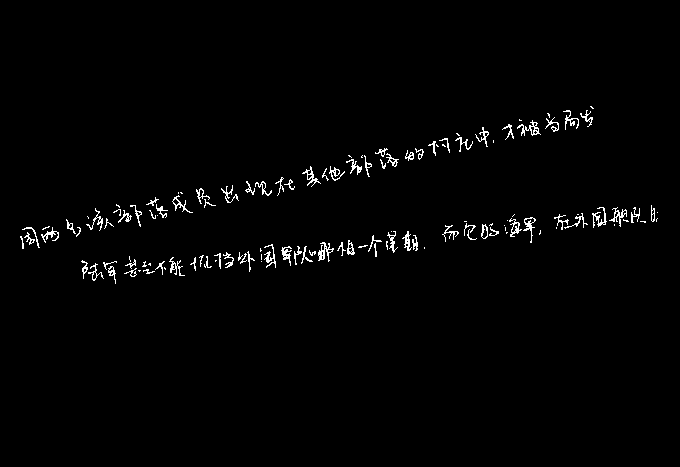 因两名该部落成员出现在其他部落的村庄中，才被当局发
陆军甚至不能抵挡外国军队哪怕一个星期，而它的海军，在外国舰队的